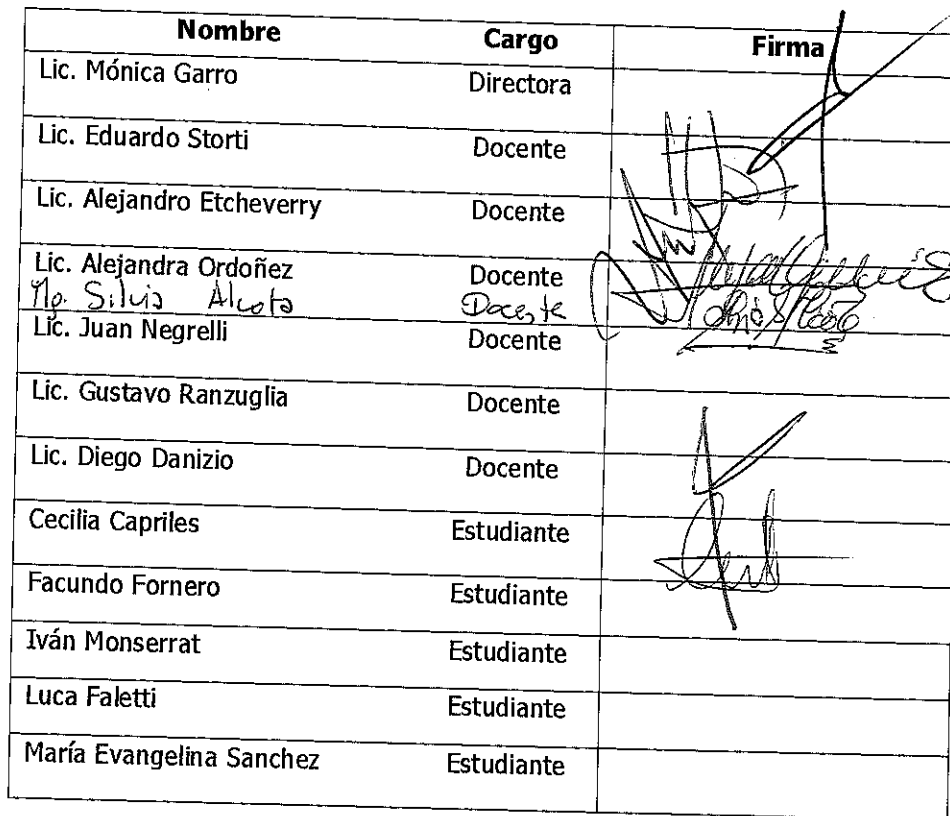 Nombre Cargo Firma
Lic. Mónica Garro Directora
Lic. Eduardo Storti Docente
Lic. Alejandro Etcheverry Docente
Lic. Alejandra Ordoñez Docente
Mg. Silvia Alcota Docente
Lic. Juan Negrelli Docente
Lic. Gustavo Ranzuglia Docente
Lic. Diego Danizio Docente
Cecilia Capriles Estudiante
Facundo Fornero Estudiante
Iván Monserrat Estudiante
Luca Faletti Estudiante
María Evangelina Sanchez Estudiante